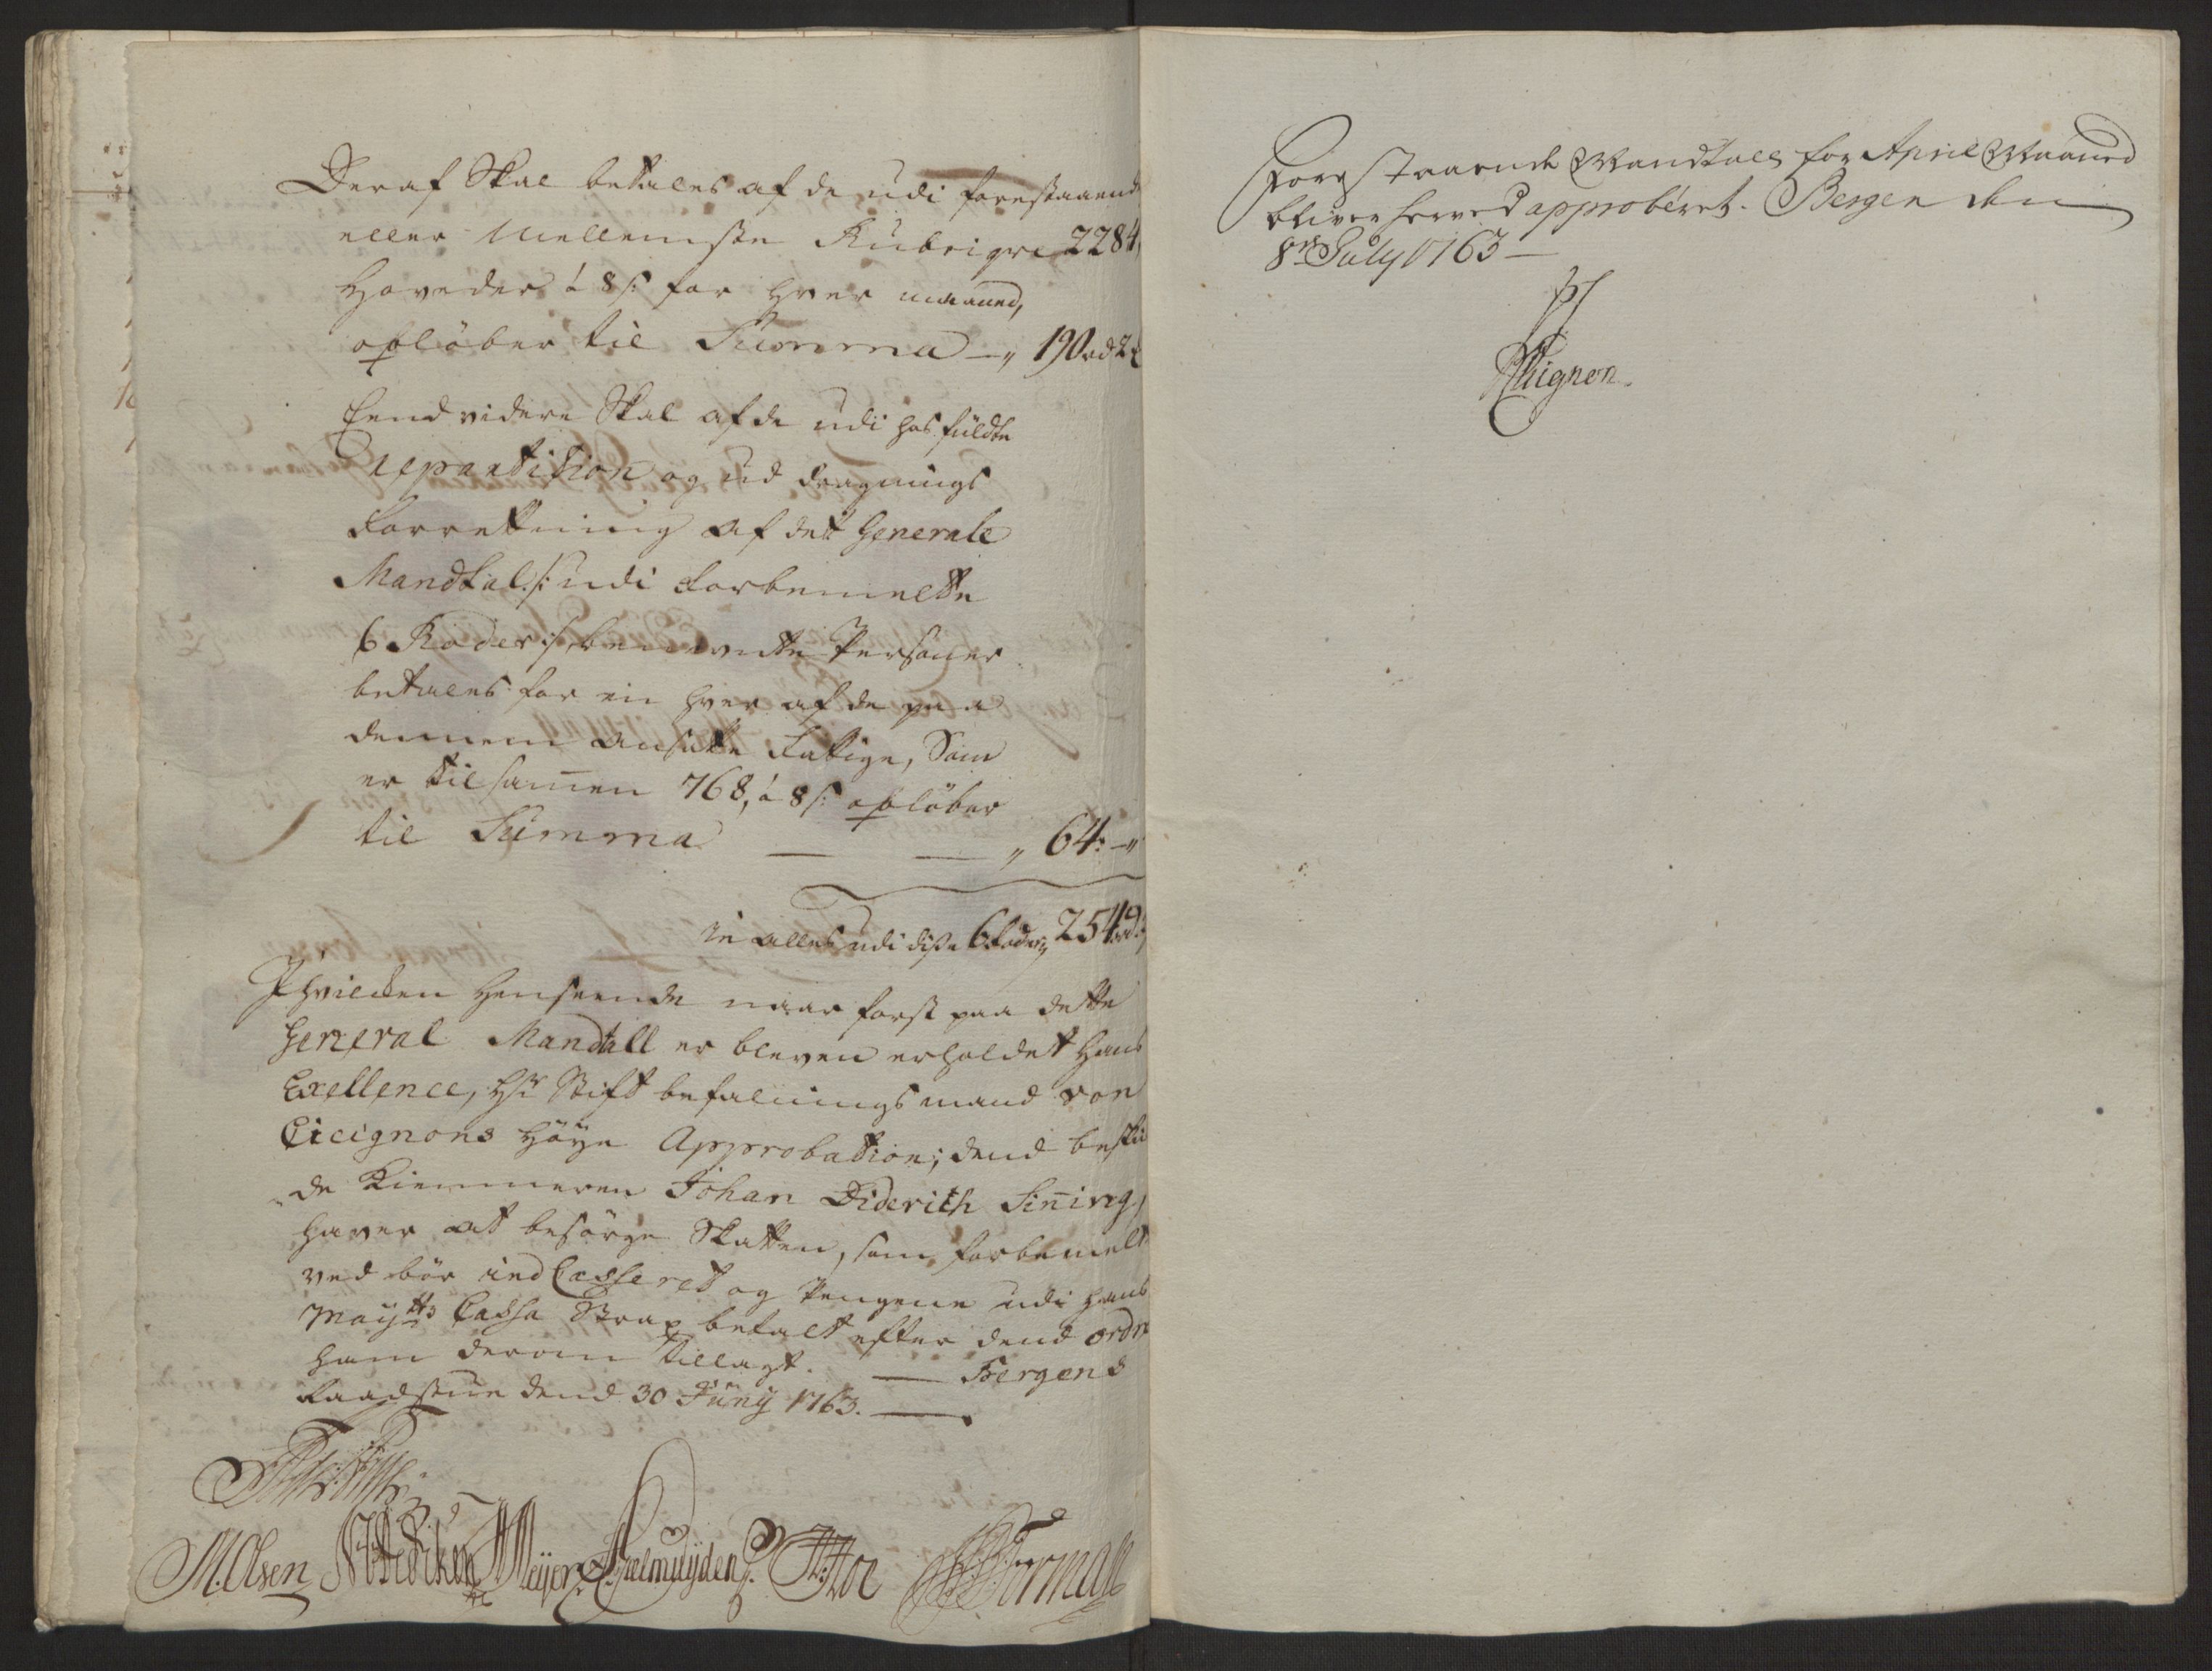 Deraf Skal betales af de udi forestaaend
eller Mellemste Rubriqve 2284,
Hoveder á 8 s: for hver maaned,
opløber til Summa — „ 190 rd 2
Eend videre Skal af de udi hos füldte
Repartition og ud dragnings
Forretning af det Generale
Mandtal /: udi forbemelte
6 Roder :/ benævnte Personer
betales for en hver af de paa
dennem ansatte Fattige, Som
er tilsam̄en 768, á 8 s: opløber
til Summa — — „ 64: — „
er alles udi diße 6 Roder, 254 rd
I hvilcken henseende naar først paa dette
General Mandtall er bleven erholdet Hans
Exellence, Hr Stift befalings mand von
Cicignons Høye Approbation; dend beskik
de Kiemneren Johan Diderich Sin̄ing,
haver at besørge Skatten, som forbemelt
ved bør ind Casseret og Pengene udi Hans
Mayts Cassa Strax betalt efter dend ordre
ham derom tillagt. — Bergens
Raadstue dend 30 Juny 1763. —
M. Olsen Fredriken Meyer
Forestaaende Mandtall for April Maaned
bliver herved approberet. Bergen den
8de July 1763 —
Cicignon.